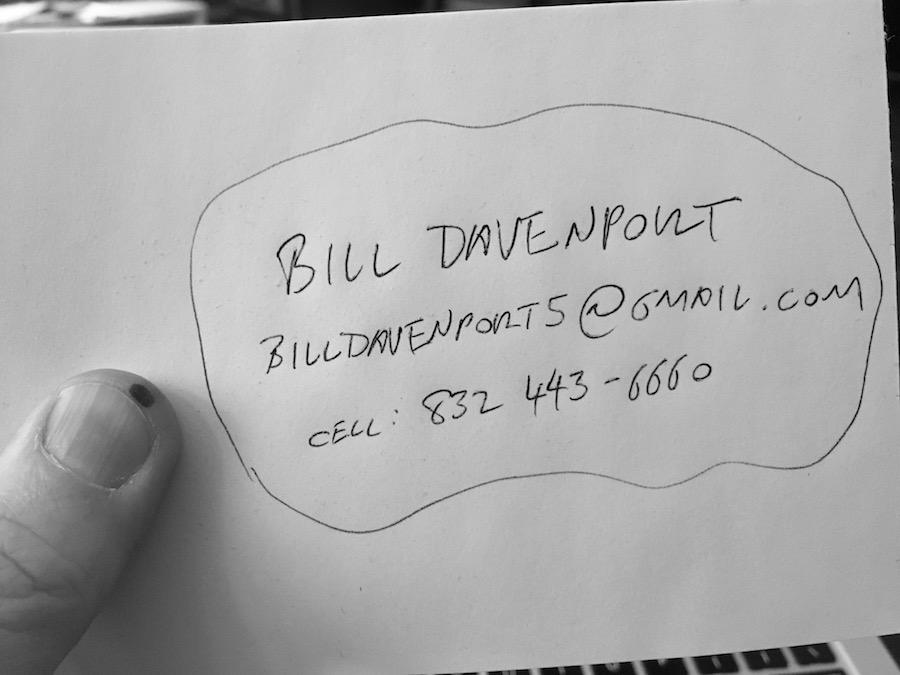 BILL DAVENPORT
BILLDAVENPORT5@GMAIL.COM
CELL: 832 443-6660